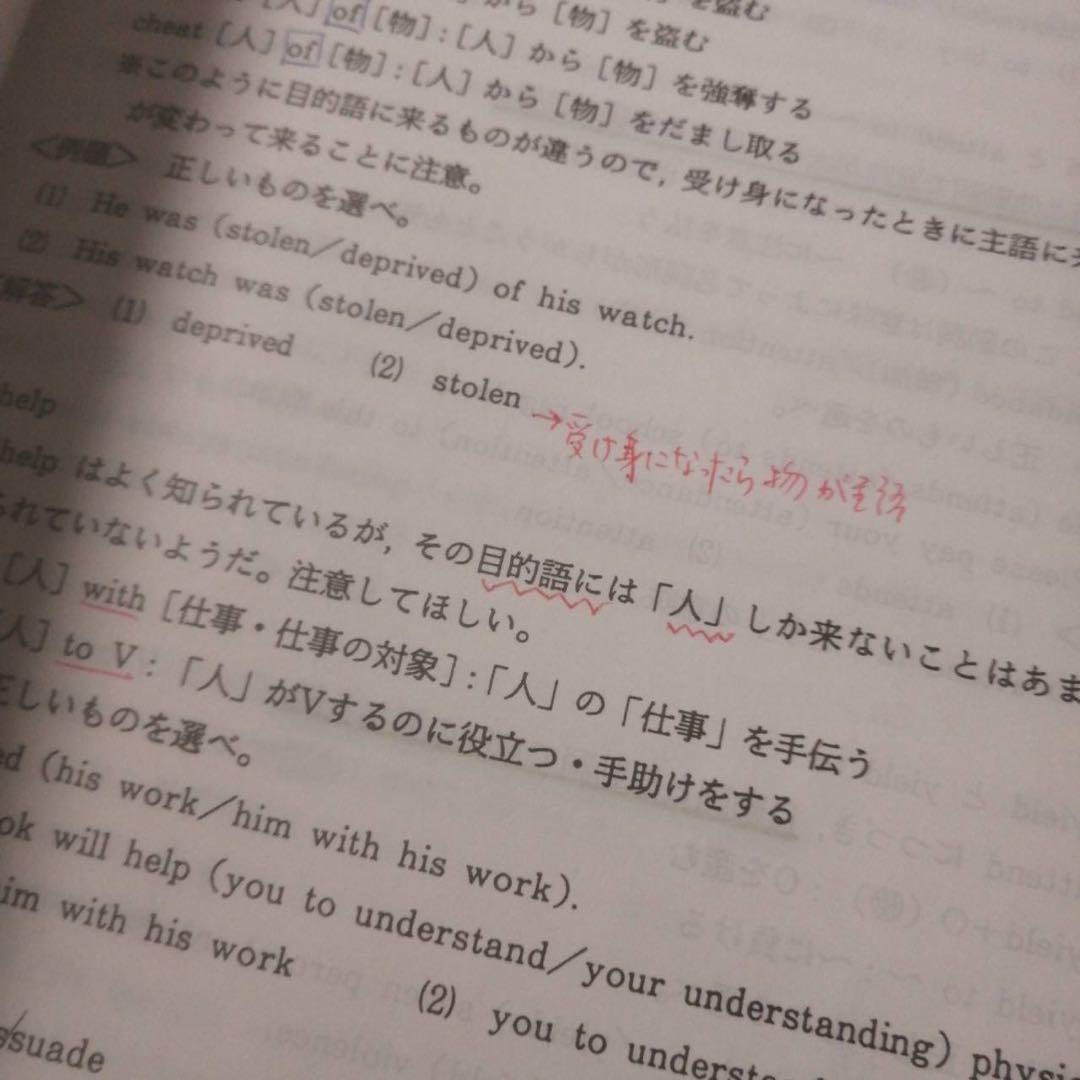 から［物］を盗む
［人］of［物］：［人］から［物］を強奪する
cheat［人］of［物］：［人］から［物］をだまし取る
※このように目的語に来るものが違うので，受け身になったときに主語に
が変わって来ることに注意。
＜例題＞ 正しいものを選べ。
(1) He was (stolen／deprived) of his watch.
(2) His watch was (stolen／deprived).
解答＞ (1) deprived (2) stolen
→受け身になったら物が主語
help
help はよく知られているが，その目的語には「人」しか来ないことはあま
られていないようだ。注意してほしい。
［人］with［仕事・仕事の対象］：「人」の「仕事」を手伝う
人］to V：「人」がVするのに役立つ・手助けをする
正しいものを選べ。
ed (his work／him with his work).
ok will help (you to understand／your understanding) physi
im with his work (2) you to underst
suade